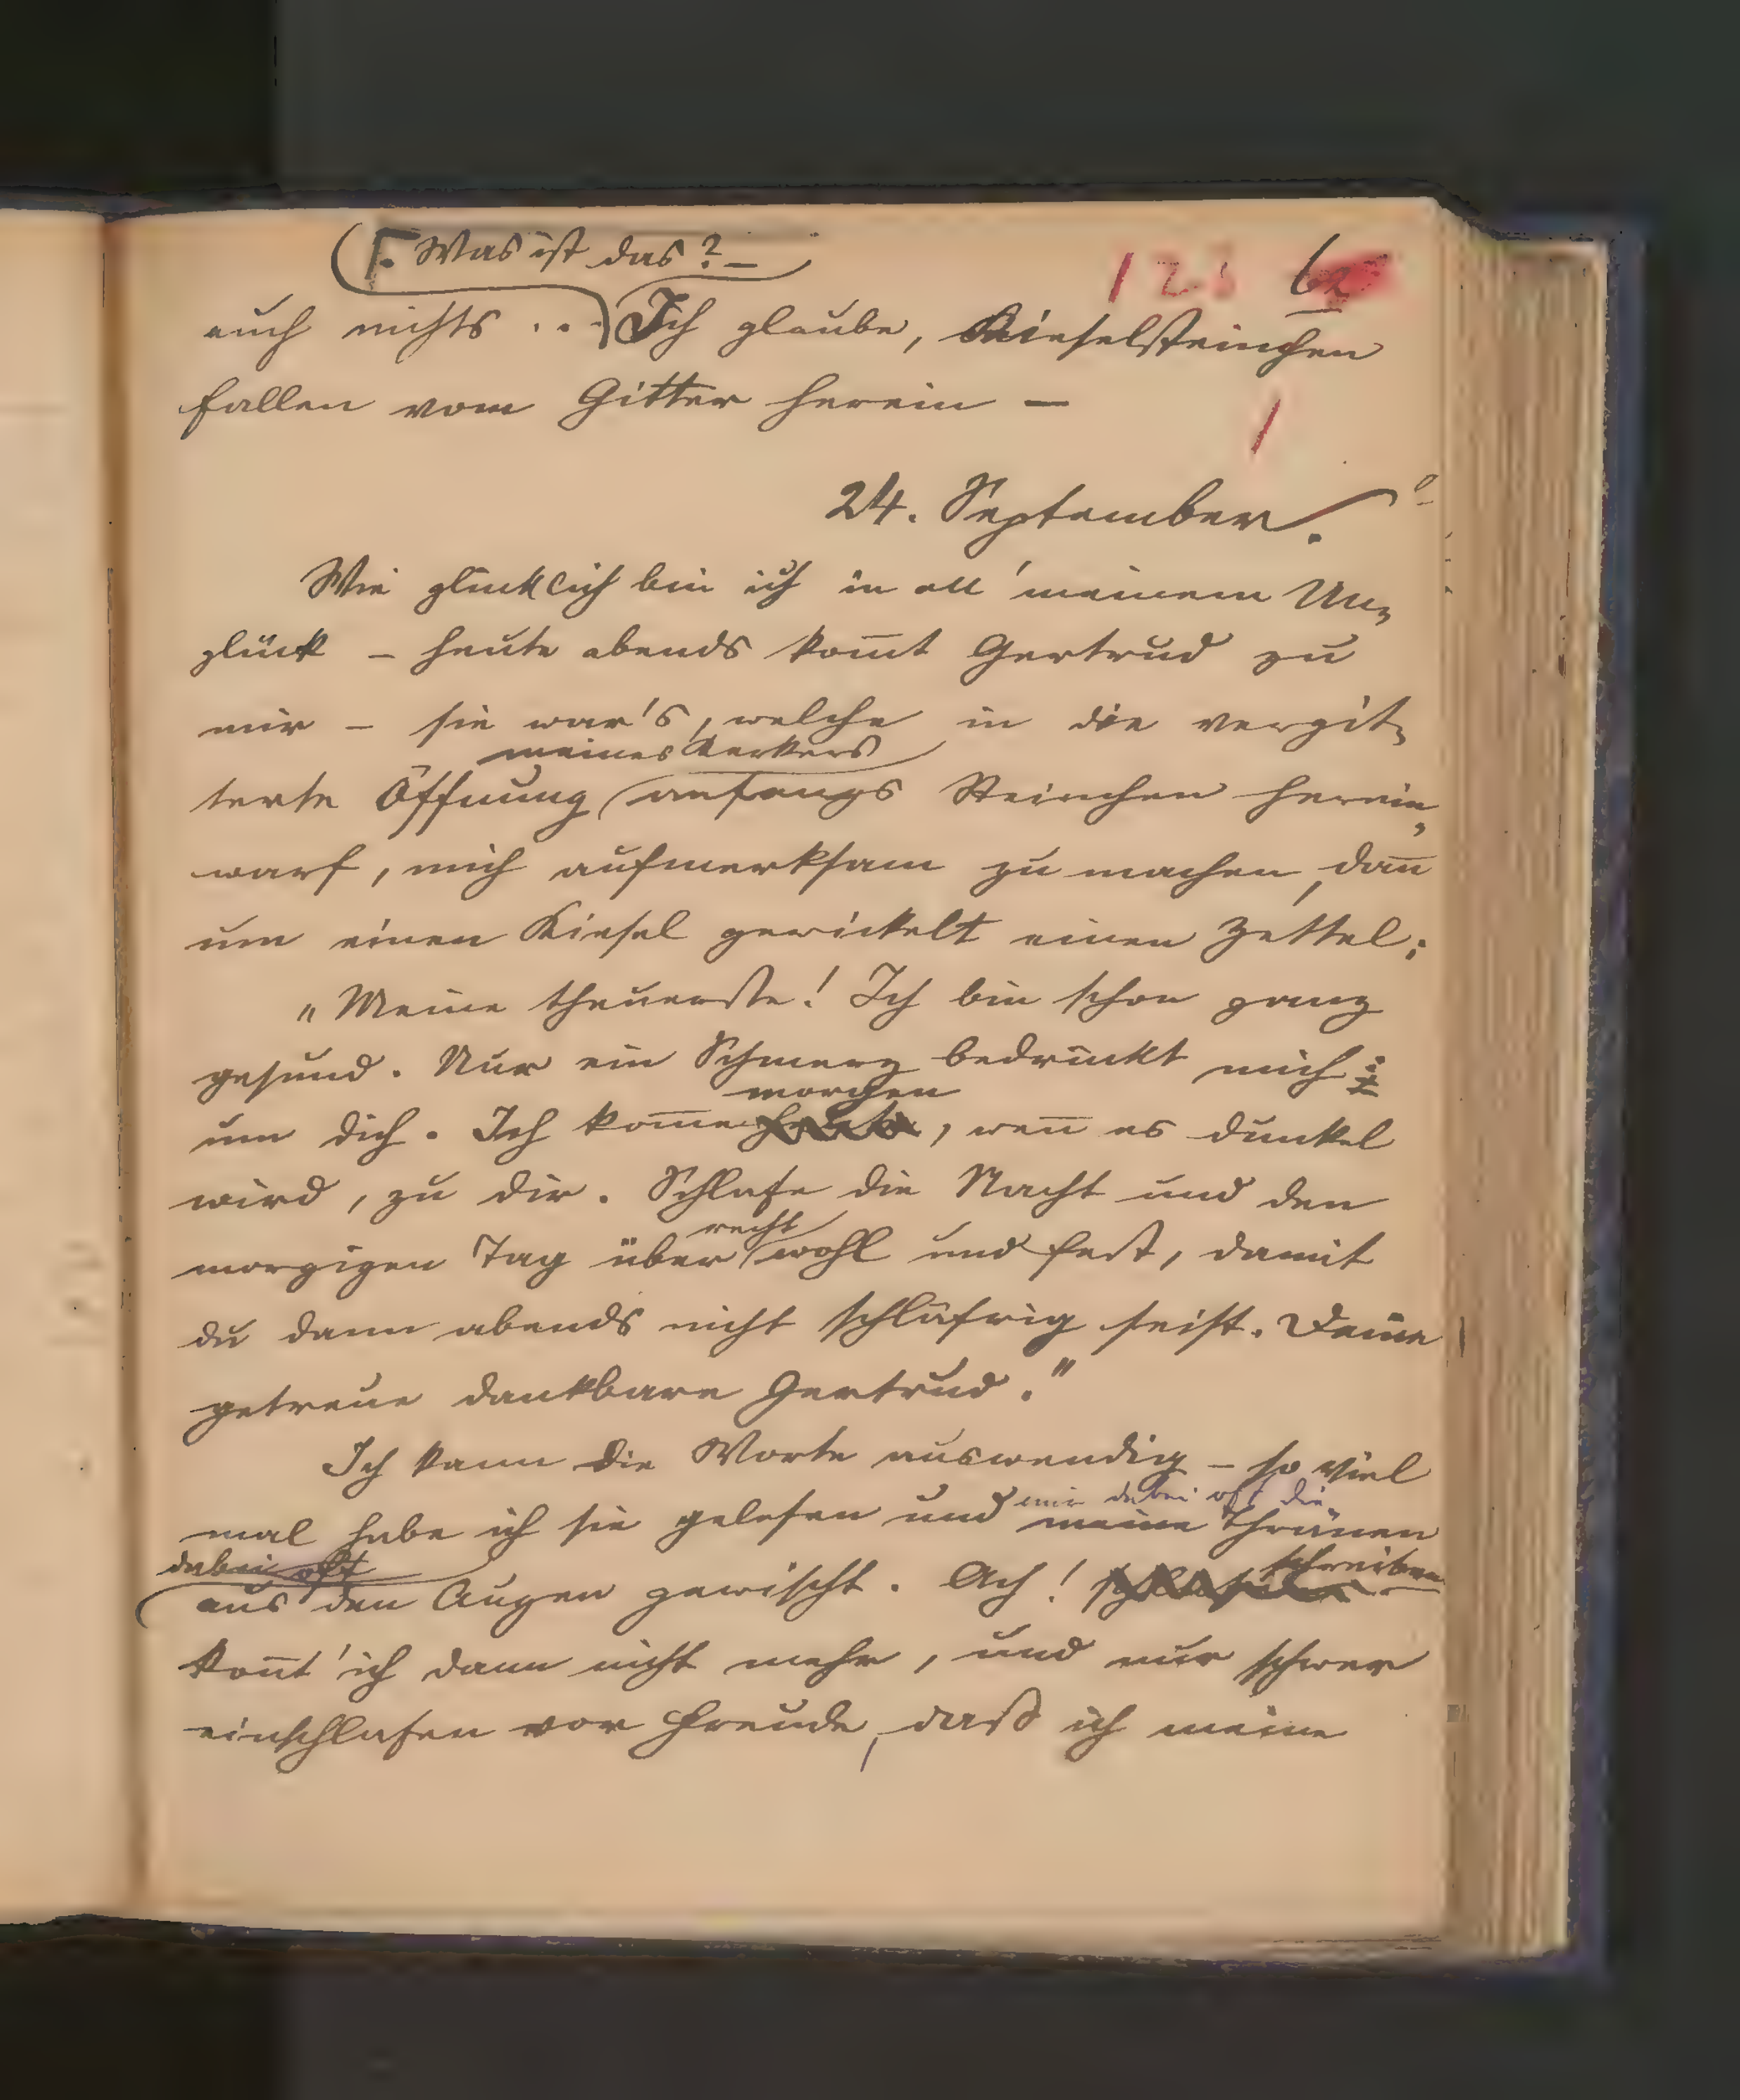 Was ist das? –
123 62
auch nichts ... Ich glaube, Kieselsteinchen
fallen vom Gitter herein –
24. September.
Wie glücklich bin ich in all' meinem Un-
glück – heute abends kom̅t Gertrud zu
mir – sie war's, welche in die vergit-
meines Kerkers
terte Öffnung anfangs Steinchen herein-
warf, mich aufmerksam zu machen, dan̅
um einen Kiesel gewickelt einen Zettel:
„Meine theuerste! Ich bin schon ganz
gesund. Nur ein Schmerz bedrückt mich:
morgen
um dich. Ich kom̅e heute, wen̅ es dunkel
wird, zu dir. Schlafe die Nacht und den
recht
morgigen Tag über wohl und fest, damit
du dann abends nicht schläfrig seist. Deine
getreue dankbare Gertrud."
Ich kann die Worte auswendig – so viel
mir dabei oft die
mal habe ich sie gelesen und meine Thränen
dabei oft schreiben
aus den Augen gewischt. Ach!
kon̅t' ich dann nicht mehr, und nur schwer
einschlafen vor Freude, daß ich meine